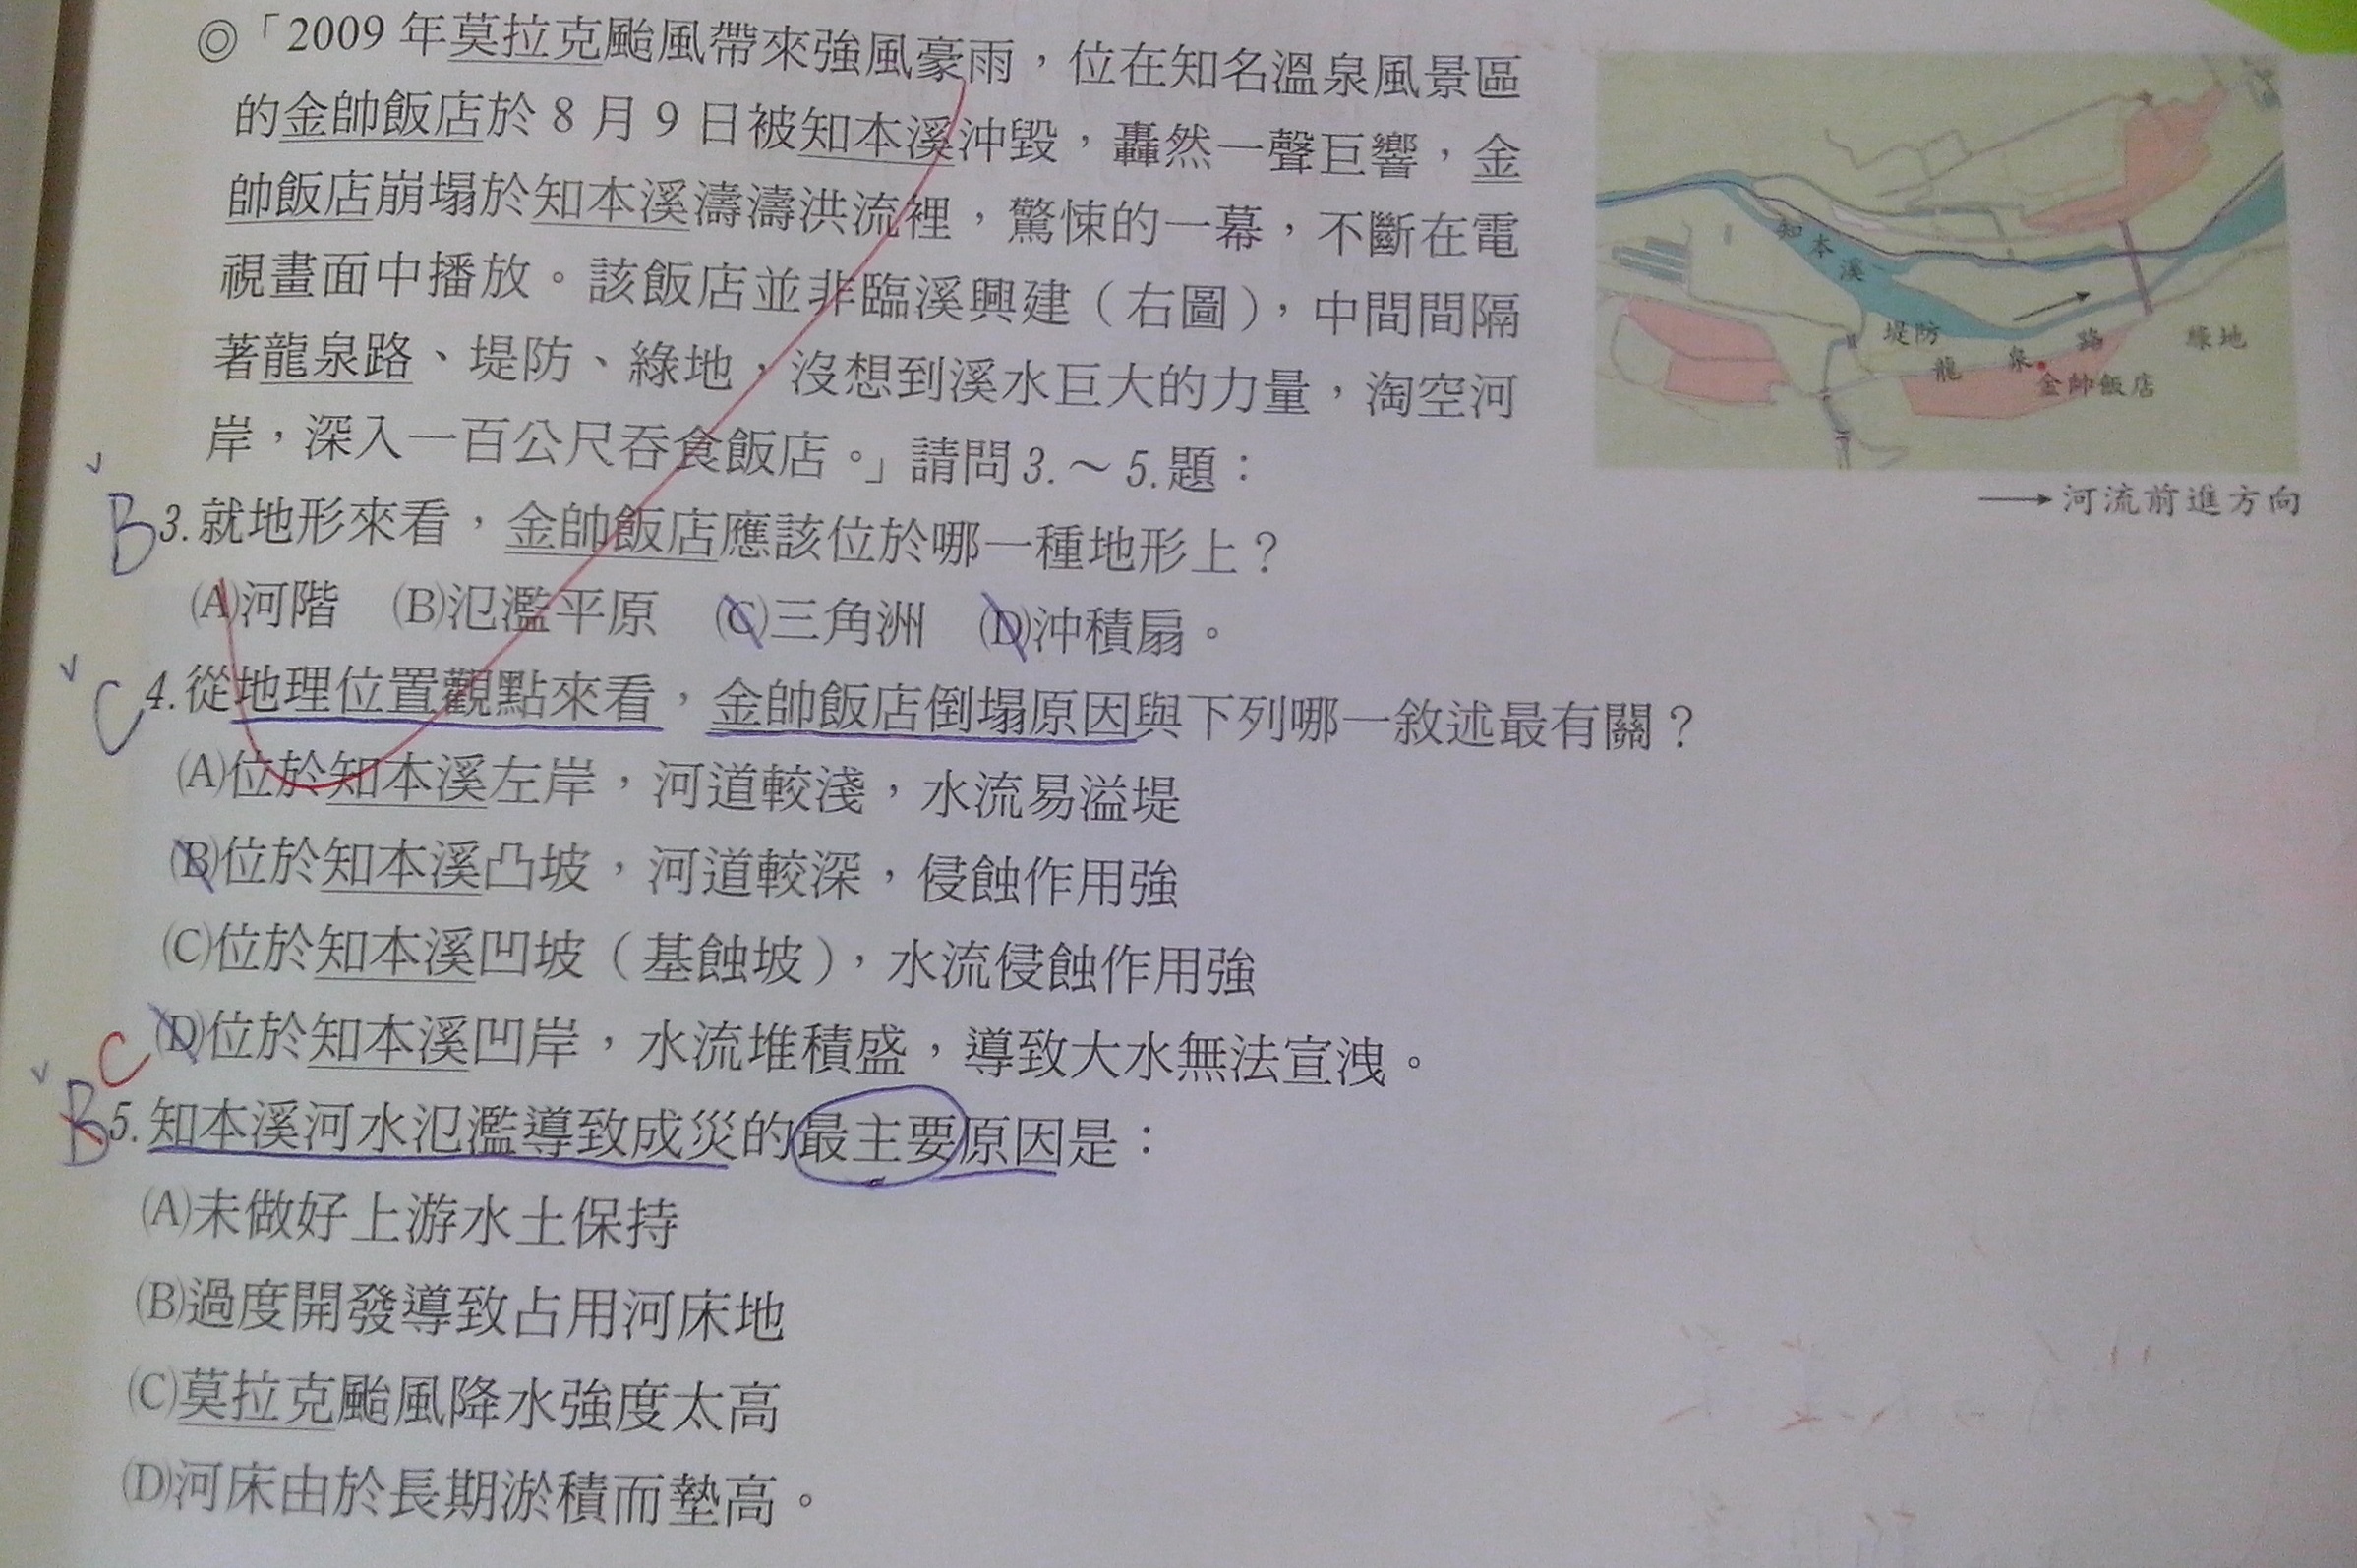 ◎「2009 年莫拉克颱風帶來強風豪雨，位在知名溫泉風景區
的金帥飯店於 8 月 9 日被知本溪沖毀，轟然一聲巨響，金
帥飯店崩塌於知本溪濤濤洪流裡，驚悚的一幕，不斷在電
視畫面中播放。該飯店並非臨溪興建（右圖），中間間隔
著龍泉路、堤防、綠地，沒想到溪水巨大的力量，淘空河
岸，深入一百公尺吞食飯店。」請問3.～5.題：
知本溪
堤防
龍泉路
綠地
金帥飯店
→河流前進方向
B 3.就地形來看，金帥飯店應該位於哪一種地形上？
(A)河階 (B)氾濫平原 (C)三角洲 (D)沖積扇。
C 4.從地理位置觀點來看，金帥飯店倒塌原因與下列哪一敘述最有關？
(A)位於知本溪左岸，河道較淺，水流易溢堤
(B)位於知本溪凸坡，河道較深，侵蝕作用強
(C)位於知本溪凹坡（基蝕坡），水流侵蝕作用強
(D)位於知本溪凹岸，水流堆積盛，導致大水無法宣洩。
C
B 5.知本溪河水氾濫導致成災的最主要原因是：
(A)未做好上游水土保持
(B)過度開發導致占用河床地
(C)莫拉克颱風降水強度太高
(D)河床由於長期淤積而墊高。